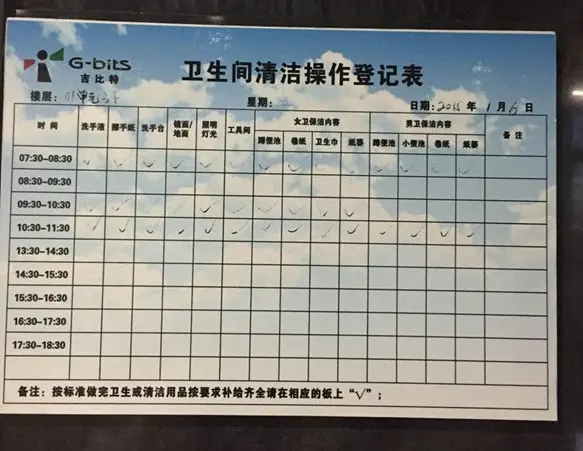 G-bits
吉比特
卫生间清洁操作登记表
楼层:
星期:
日期: 年 1 月 6 日
时 间 洗手液 擦手纸 洗手台 镜面/地面 照明灯光 工具间 女卫保洁内容 男卫保洁内容 备 注
蹲便池 卷纸 卫生巾 纸篓 蹲便池 小便池 卷纸 纸篓
07:30-08:30 √ √ √ √ √ √ √ √ √ √ √ √ √ √
08:30-09:30
09:30-10:30 √ √ √ √ √
10:30-11:30 √ √ √ √ √ √ √ √ √ √ √ √ √ √
13:30-14:30
14:30-15:30
15:30-16:30
16:30-17:30
17:30-18:30
备注：按标准做完卫生或清洁用品按要求补给齐全请在相应的板上“√”；